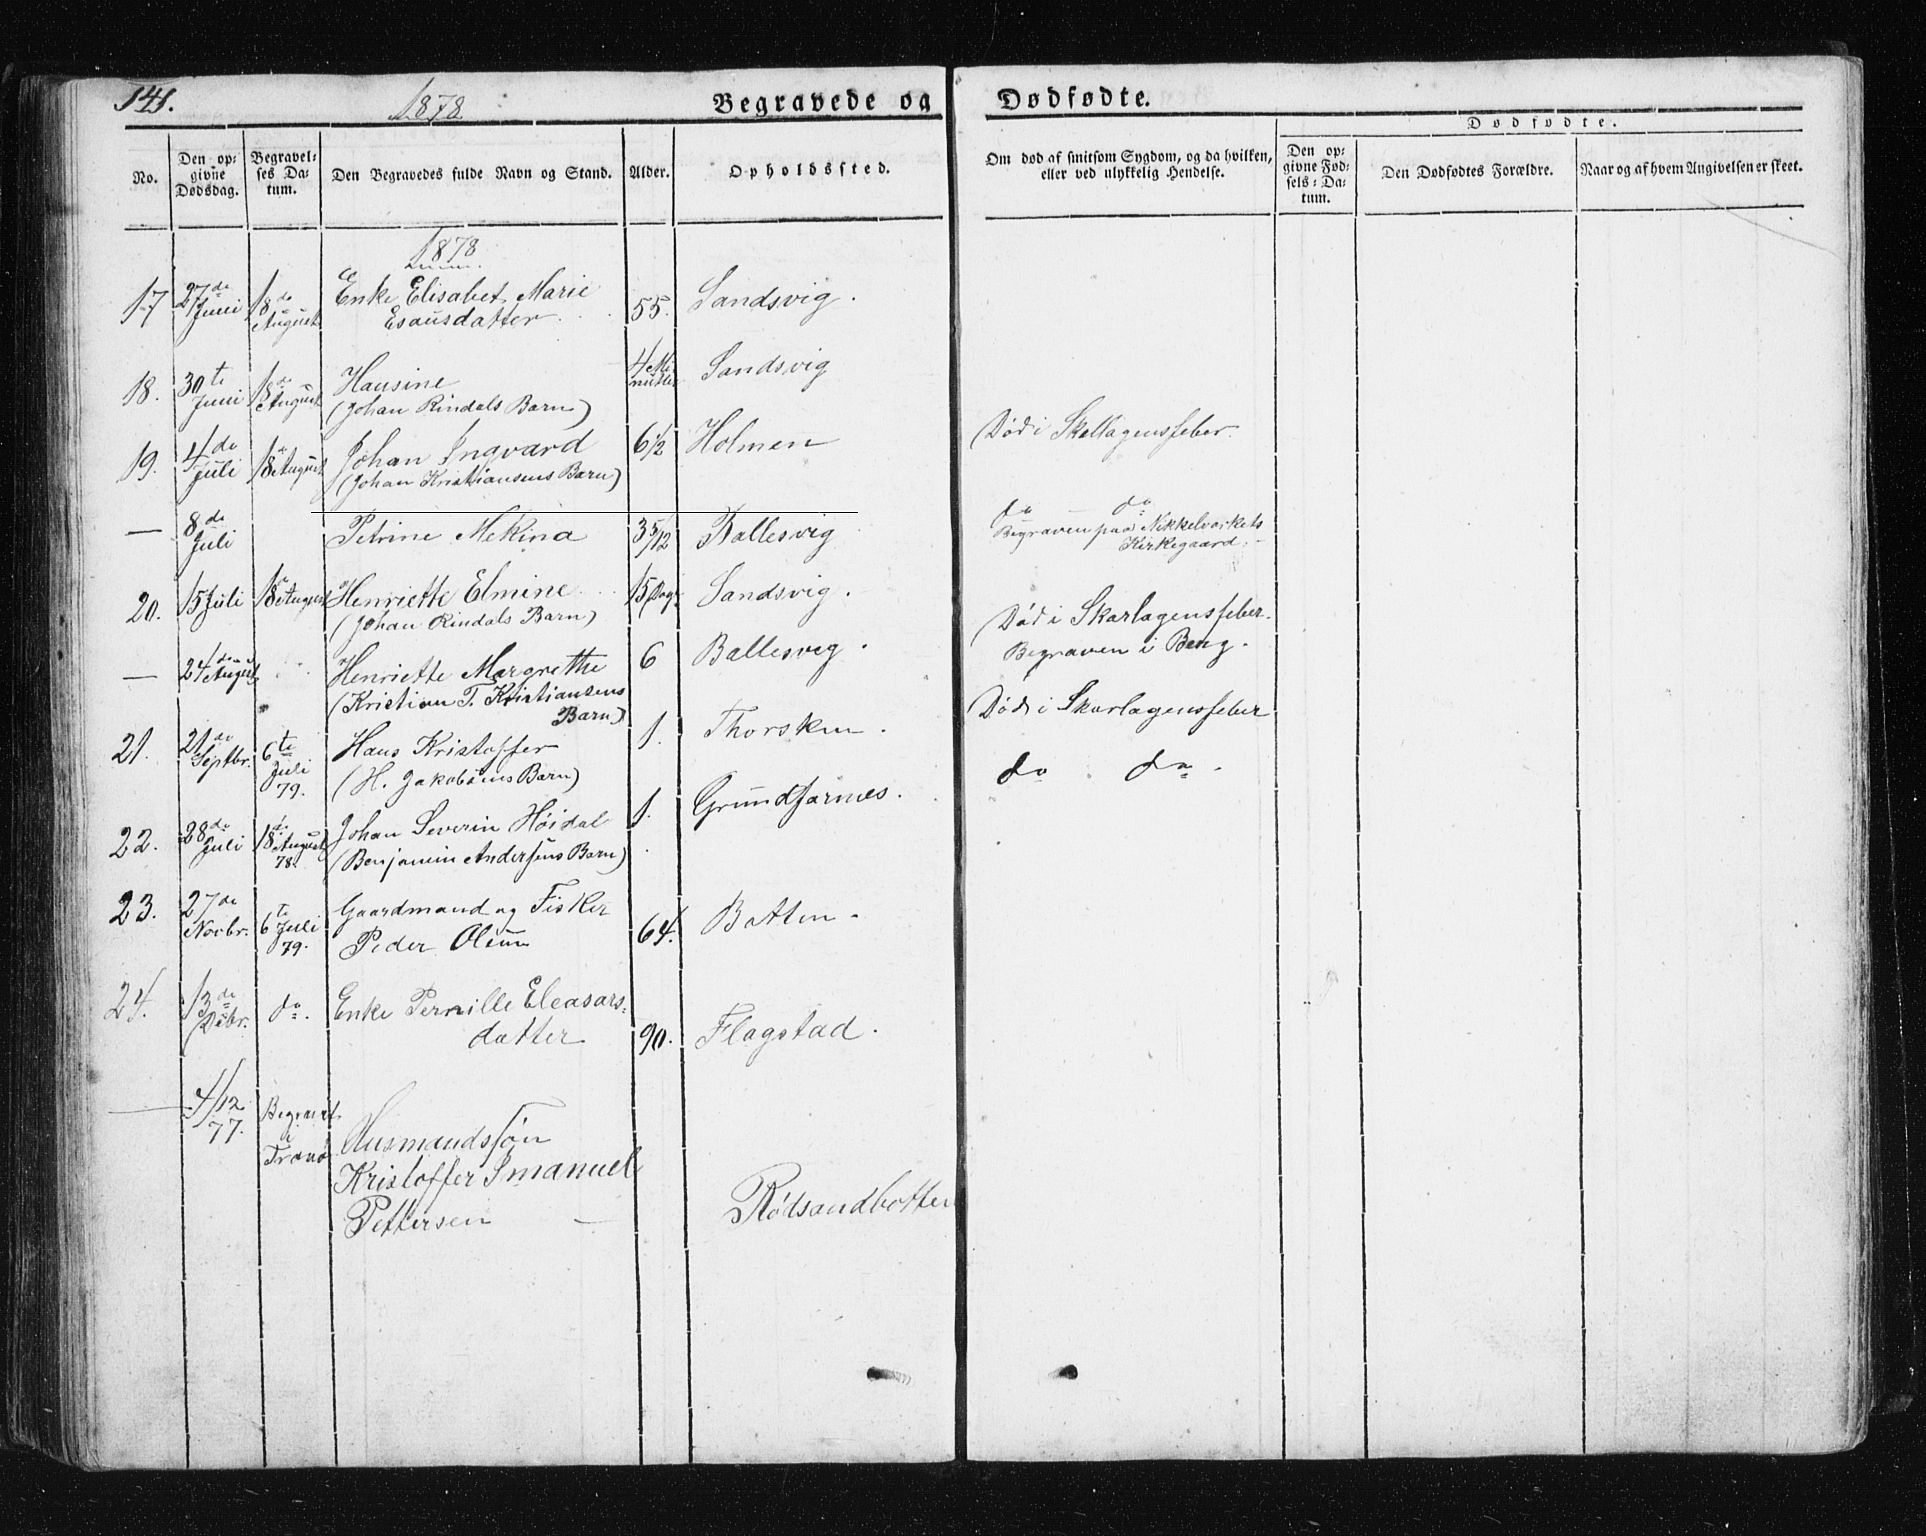 141.
1878
Begravede og Dødfødte.
Dødfødte.
No.
Den op-
givne
Dødsdag.
Begravel-
ses Da-
tum.
Den Begravedes fulde Navn og Stand.
Alder.
Opholdssted.
Om død af smitsom Sygdom, og da hvilken,
eller ved ulykkelig Hendelse.
Den op-
givne Fød-
sels-Da-
tum.
Den Dødfødtes Forældre.
Naar og af hvem Angivelsen er skeet.
1878
17 27de Juni 18de August Enke Elisabet Marie 55. Sandsvig.
Esausdatter
18. 30te Juni 18de August Hansine 4 Mi- Sandsvig
nutter
(Johan Rindals Barn)
19. 4de Juli 18de August Johan Ingvard 6½ Holmen Død i Skallagensfeber.
(Johan Kristiansens Barn)
— 8de Juli Petrine Mekina 3 5/12 Ballesvig do do
Begraven paa Nikkelværkets
Kirkegaard.
20. 15 Juli 18de August Henriette Elmine 15 Dag. Sandsvig.
(Johan Rindals Barn)
— 24de August Henriette Margrethe 6 Ballesvig. Død i Skarlagensfeber.
Begraven i Berg.
(Kristian T. Kristiansens
Barn)
21. 21de Septbr. 6te Juli 79. Hans Kristoffer 1. Thorsken. Død i Skarlagensfeber
(H. Jakobsens Barn)
22. 28de Juli 18de August 78. Johan Severin Høidal 1. Grundfarnes. do do.
(Benjamin Andersens Barn)
23. 27de Novbr. 6te Juli 79. Gaardmand og Fisker
Peder Olsen 64. Botten.
24. 13de Debr. do. Enke Pernille Eleasars-
datter 90. Flagstad.
— 4/12 77. Begravet
i
Tranø
Husmandssøn
Kristoffer Imanuel
Pettersen — Rødsandbotten